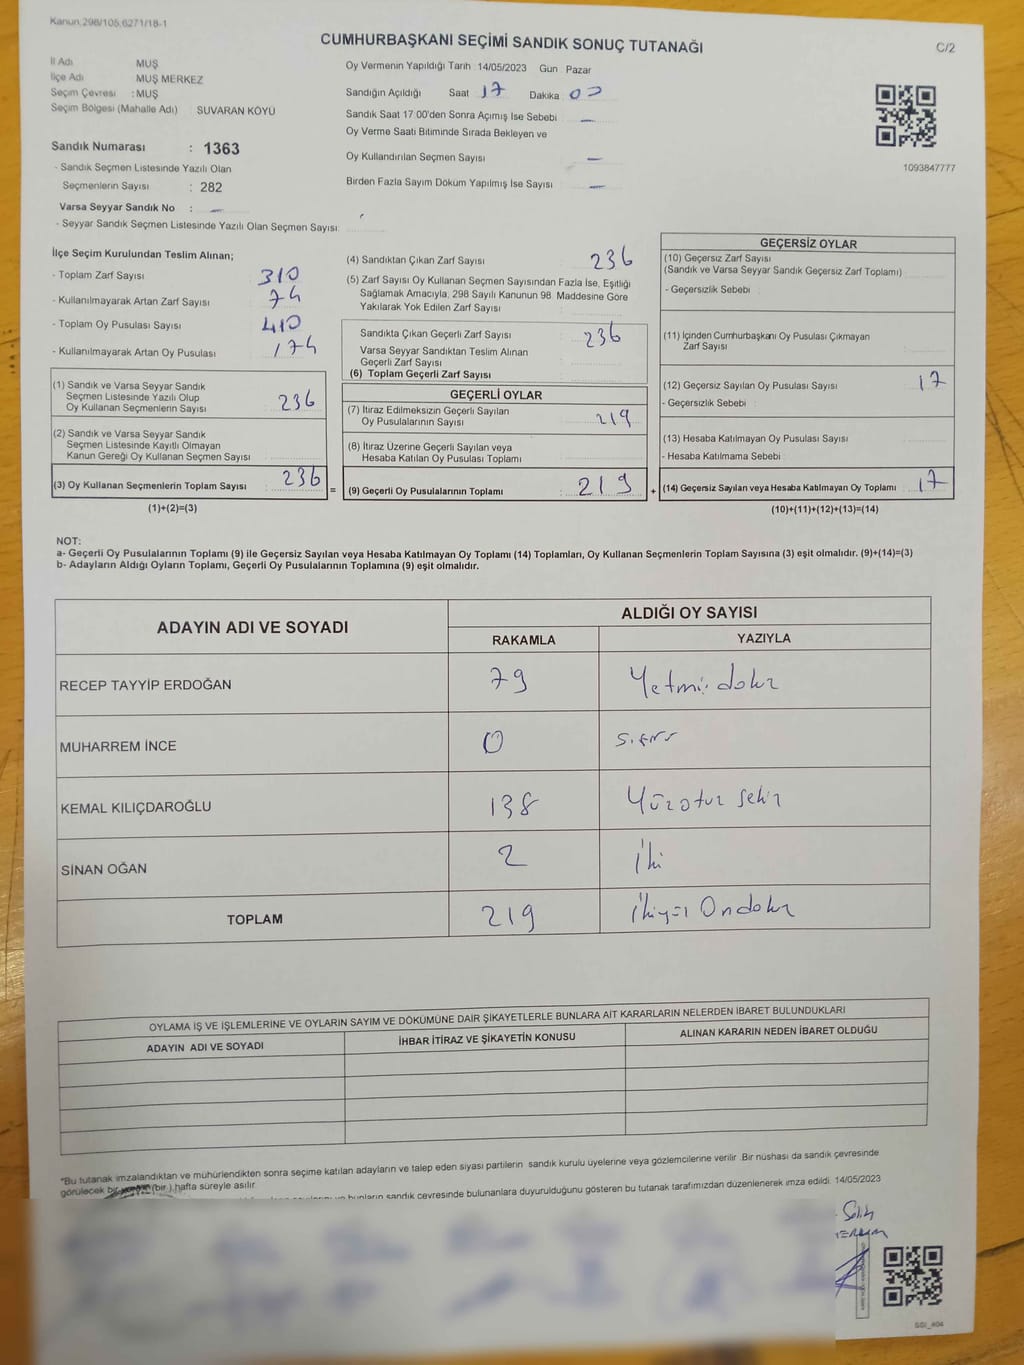 Kanun:298/105,6271/18-1
CUMHURBAŞKANI SEÇİMİ SANDIK SONUÇ TUTANAĞI
C/2
İl Adı MUŞ
İlçe Adı MUŞ MERKEZ
Seçim Çevresi : MUŞ
Seçim Bölgesi (Mahalle Adı) SUVARAN KÖYÜ
Sandık Numarası : 1363
- Sandık Seçmen Listesinde Yazılı Olan
Seçmenlerin Sayısı : 282
Varsa Seyyar Sandık No : –
- Seyyar Sandık Seçmen Listesinde Yazılı Olan Seçmen Sayısı:
Oy Vermenin Yapıldığı Tarih 14/05/2023 Gün Pazar
Sandığın Açıldığı Saat 17 Dakika 00
Sandık Saat 17.00'den Sonra Açımış İse Sebebi –
Oy Verme Saati Bitiminde Sırada Bekleyen ve
Oy Kullandırılan Seçmen Sayısı –
Birden Fazla Sayım Döküm Yapılmış İse Sayısı –
1093847777
İlçe Seçim Kurulundan Teslim Alınan;
- Toplam Zarf Sayısı 310
- Kullanılmayarak Artan Zarf Sayısı 74
- Toplam Oy Pusulası Sayısı 410
- Kullanılmayarak Artan Oy Pusulası 174
(1) Sandık ve Varsa Seyyar Sandık
Seçmen Listesinde Yazılı Olup
Oy Kullanan Seçmenlerin Sayısı 236
(2) Sandık ve Varsa Seyyar Sandık
Seçmen Listesinde Kayıtlı Olmayan
Kanun Gereği Oy Kullanan Seçmen Sayısı
(3) Oy Kullanan Seçmenlerin Toplam Sayısı 236
(1)+(2)=(3)
(4) Sandıktan Çıkan Zarf Sayısı 236
(5) Zarf Sayısı Oy Kullanan Seçmen Sayısından Fazla İse, Eşitliği
Sağlamak Amacıyla, 298 Sayılı Kanunun 98. Maddesine Göre
Yakılarak Yok Edilen Zarf Sayısı
Sandıkta Çıkan Geçerli Zarf Sayısı 236
Varsa Seyyar Sandıktan Teslim Alınan
Geçerli Zarf Sayısı
(6) Toplam Geçerli Zarf Sayısı
GEÇERLİ OYLAR
(7) İtiraz Edilmeksizin Geçerli Sayılan
Oy Pusulalarının Sayısı 219
(8) İtiraz Üzerine Geçerli Sayılan veya
Hesaba Katılan Oy Pusulası Toplamı
= (9) Geçerli Oy Pusulalarının Toplamı 219 +
GEÇERSİZ OYLAR
(10) Geçersiz Zarf Sayısı
(Sandık ve Varsa Seyyar Sandık Geçersiz Zarf Toplamı)
- Geçersizlik Sebebi
(11) İçinden Cumhurbaşkanı Oy Pusulası Çıkmayan
Zarf Sayısı
(12) Geçersiz Sayılan Oy Pusulası Sayısı 17
- Geçersizlik Sebebi
(13) Hesaba Katılmayan Oy Pusulası Sayısı
- Hesaba Katılmama Sebebi
(14) Geçersiz Sayılan veya Hesaba Katılmayan Oy Toplamı 17
(10)+(11)+(12)+(13)=(14)
NOT:
a- Geçerli Oy Pusulalarının Toplamı (9) ile Geçersiz Sayılan veya Hesaba Katılmayan Oy Toplamı (14) Toplamları, Oy Kullanan Seçmenlerin Toplam Sayısına (3) eşit olmalıdır. (9)+(14)=(3)
b- Adayların Aldığı Oyların Toplamı, Geçerli Oy Pusulalarının Toplamına (9) eşit olmalıdır.
ADAYIN ADI VE SOYADI
ALDIĞI OY SAYISI
RAKAMLA YAZIYLA
RECEP TAYYİP ERDOĞAN 79 Yetmiş dokuz
MUHARREM İNCE 0 sıfır
KEMAL KILIÇDAROĞLU 138 Yüzotuz sekiz
SİNAN OĞAN 2 İki
TOPLAM 219 İkiyüz Ondokuz
OYLAMA İŞ VE İŞLEMLERİNE VE OYLARIN SAYIM VE DÖKÜMÜNE DAİR ŞİKAYETLERLE BUNLARA AİT KARARLARIN NELERDEN İBARET BULUNDUKLARI
ADAYIN ADI VE SOYADI
İHBAR İTİRAZ VE ŞİKAYETİN KONUSU
ALINAN KARARIN NEDEN İBARET OLDUĞU
"Bu tutanak imzalandıktan ve mühürlendikten sonra seçime katılan adayların ve talep eden siyasi partilerin sandık kurulu üyelerine veya gözlemcilerine verilir .Bir nüshası da sandık çevresinde
görülecek bir (bir ) hafta süreyle asılır.
bunların sandık çevresinde bulunanlara duyurulduğunu gösteren bu tutanak tarafımızdan düzenlenerek imza edildi. 14/05/2023